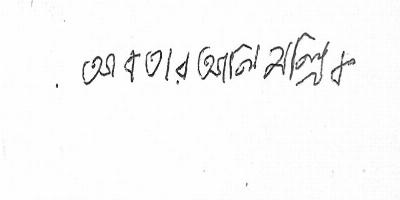 আবতার আলি মল্লিক